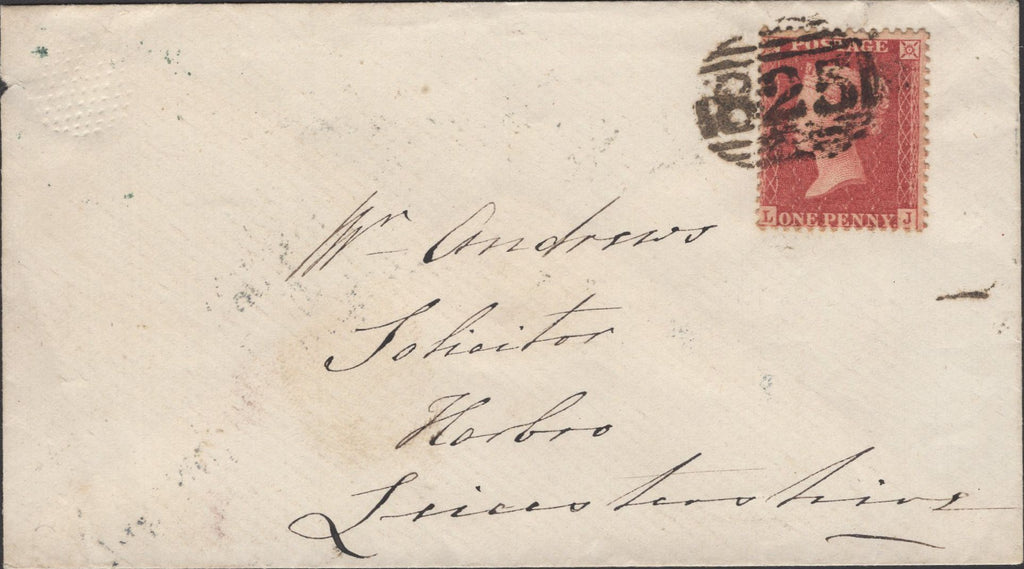 POSTAGE
825
L ONE PENNY J
Mr Andrews
Solicitor
Harbro
Leicestershire